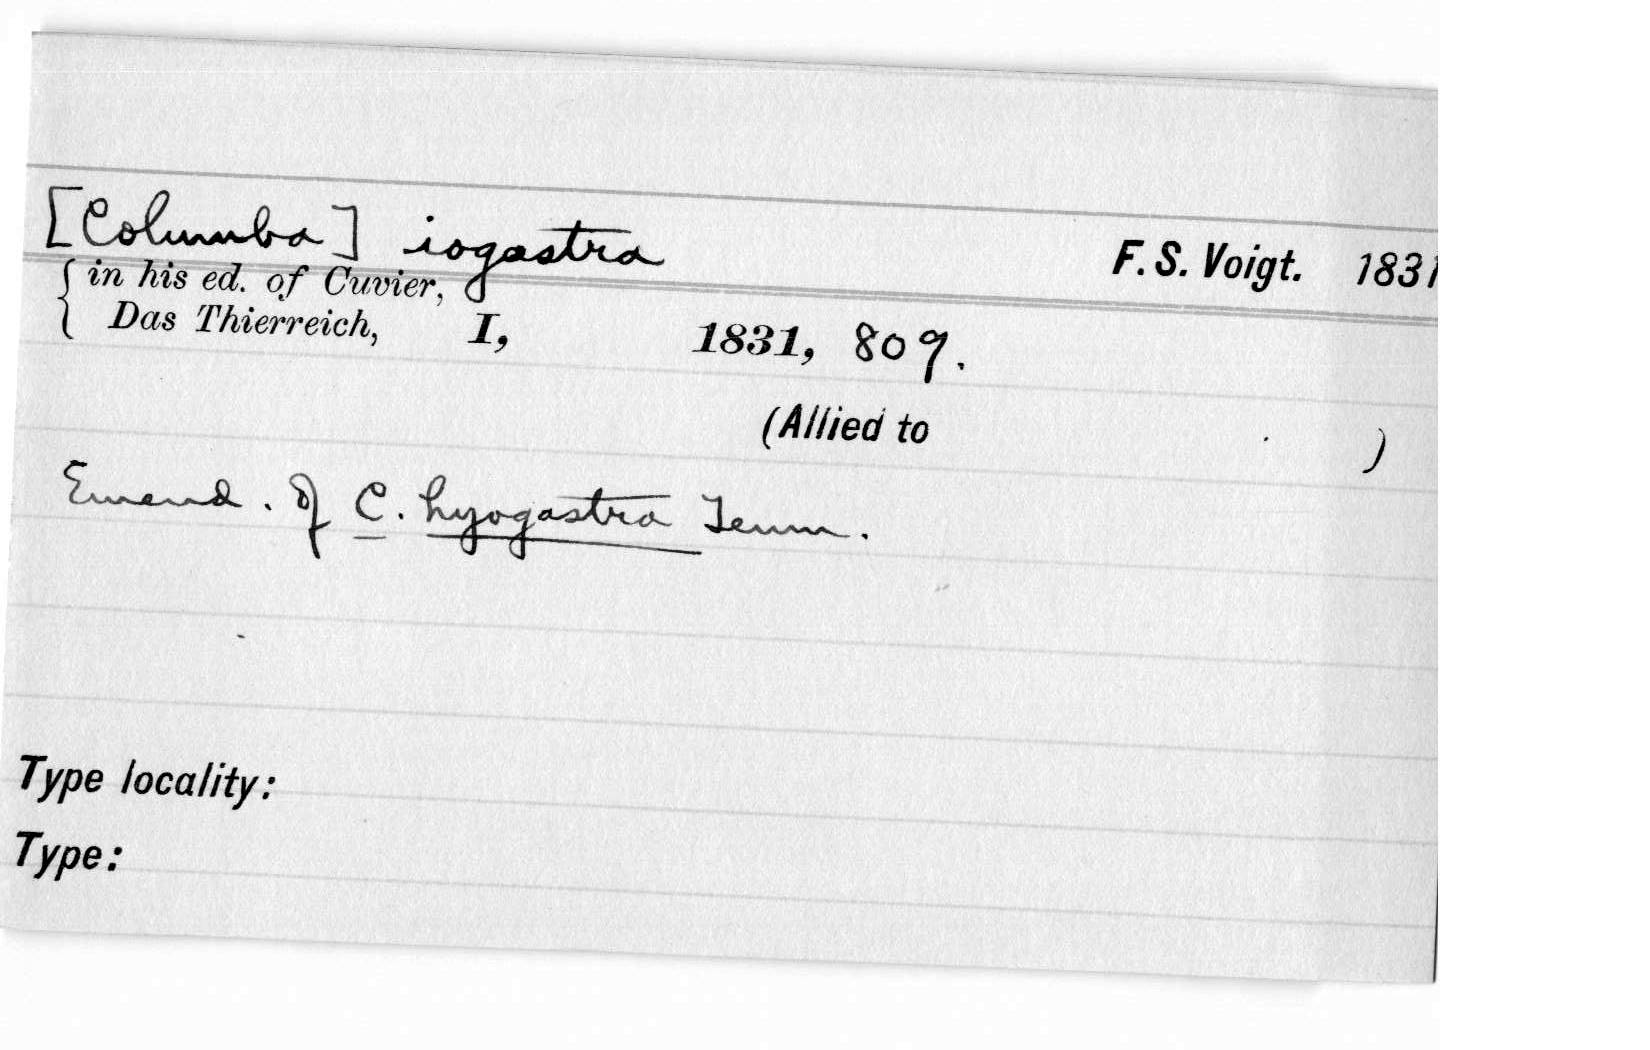 [Columba] iogastra F. S. Voigt. 1831
in his ed. of Cuvier,
Das Thierreich, I, 1831, 809.
(Allied to . )
Emend. of C. hyogastra Temm.
Type locality:
Type: